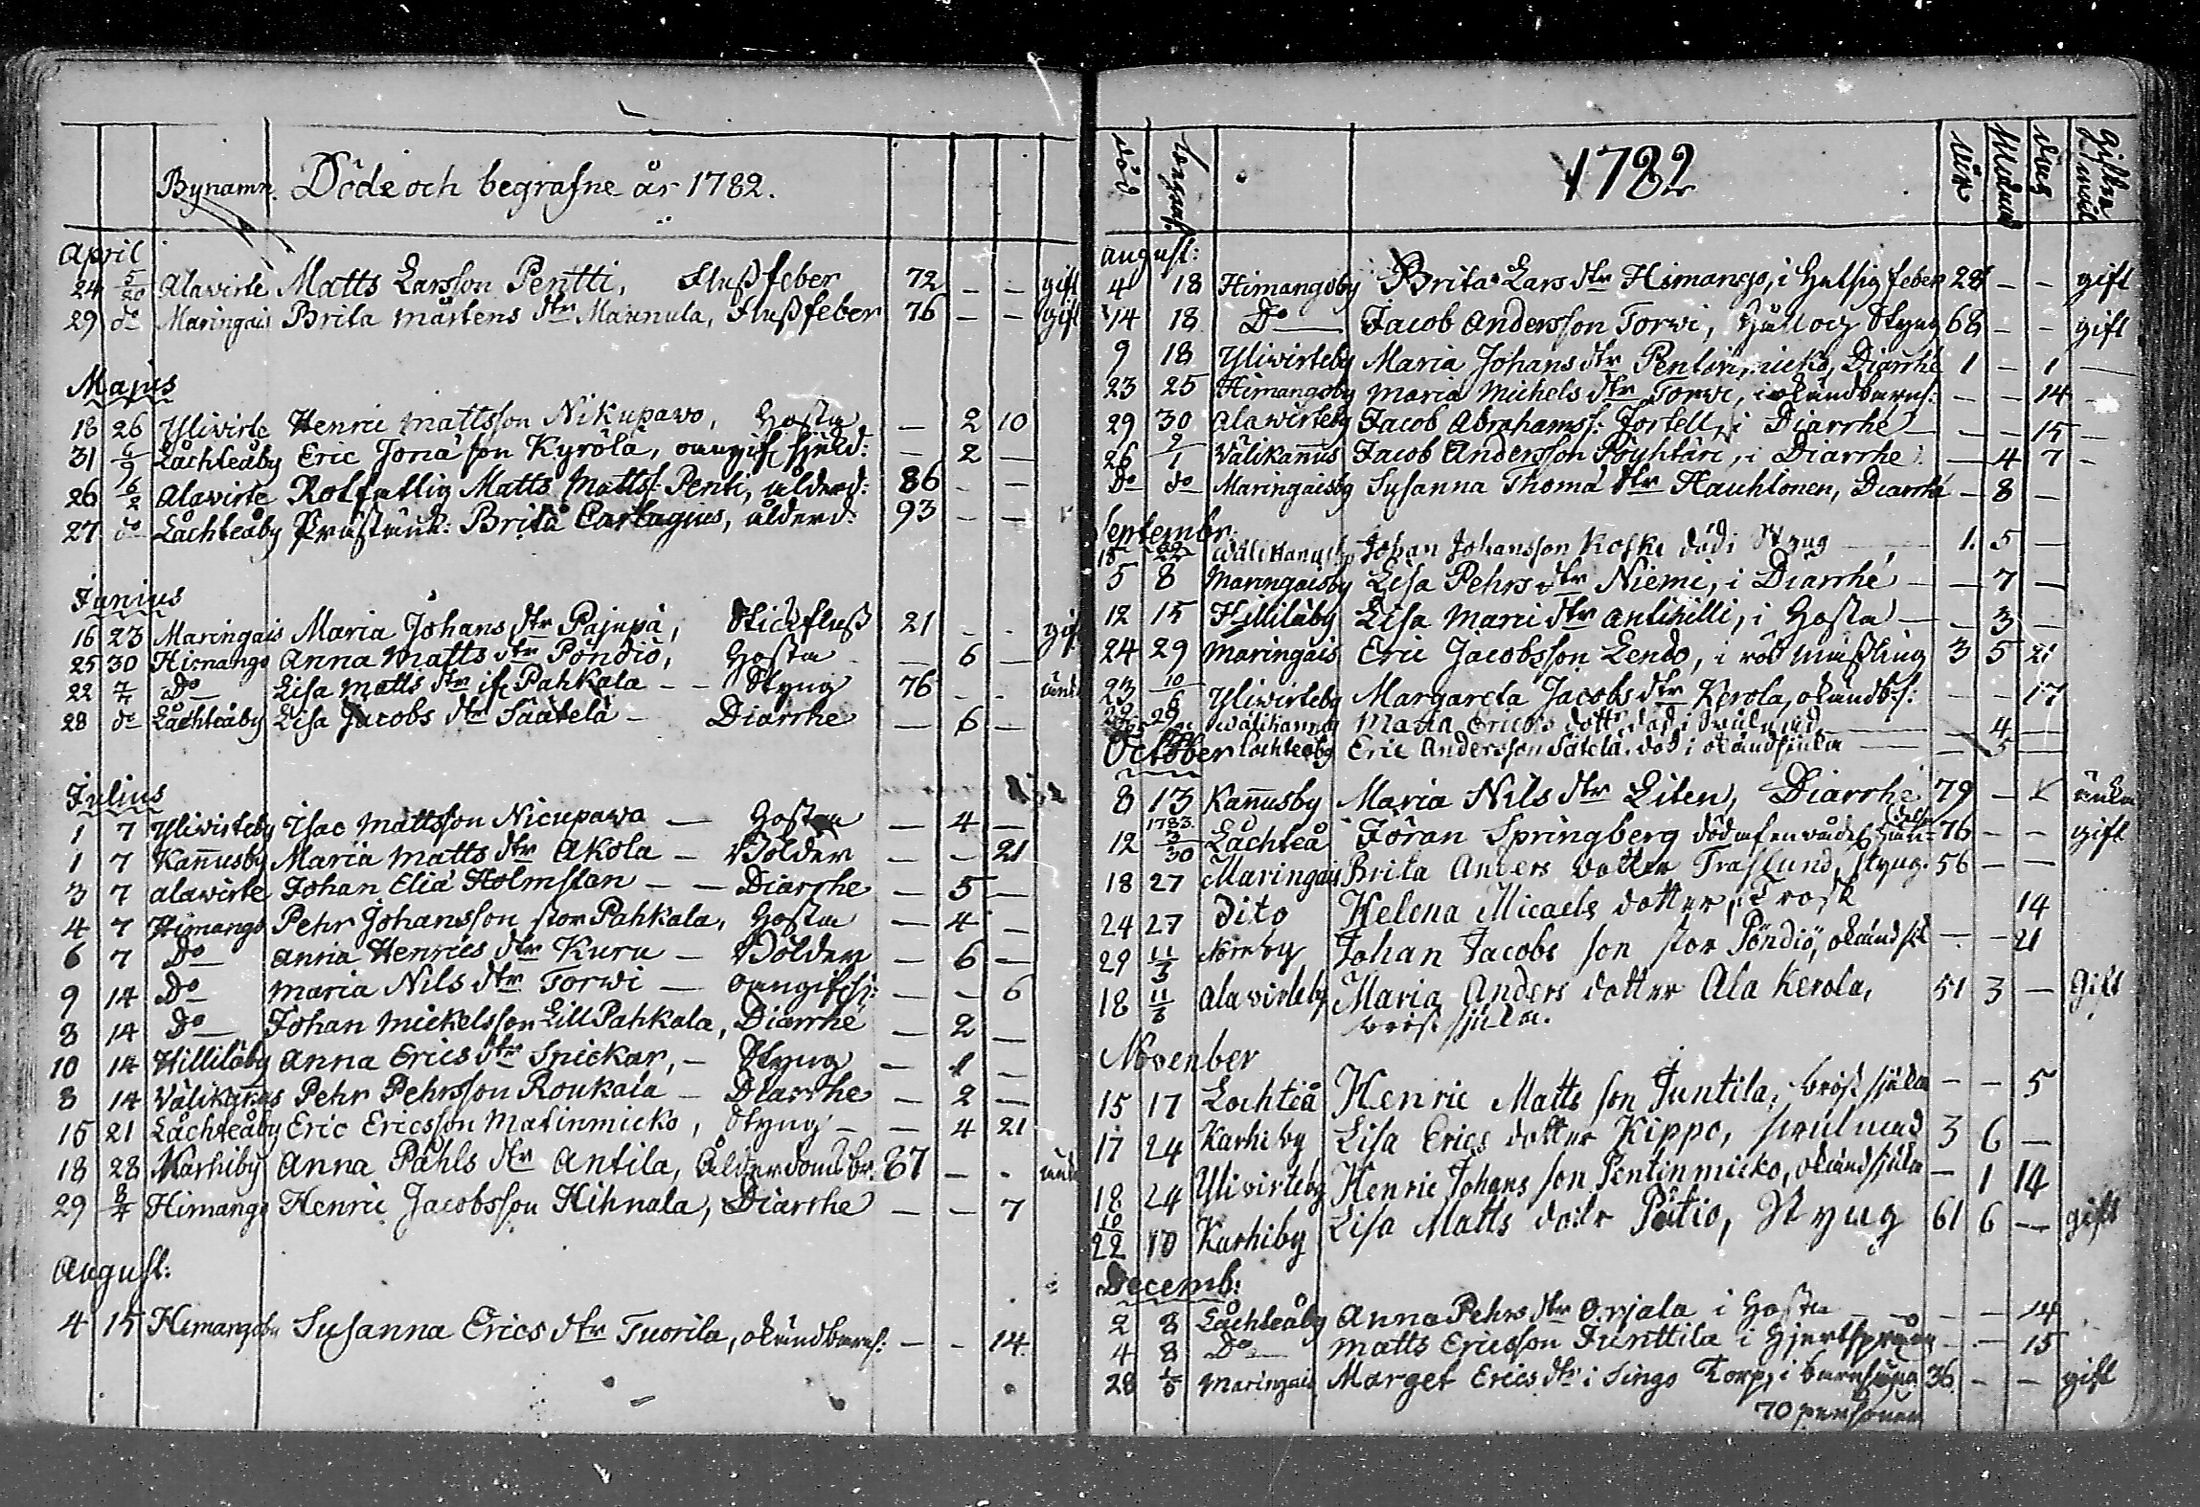 Bynamn. Döde och begrafne år 1782.
April
24 5/20 Alavirte Matts Larsson Pentti, Flussfeber 72 - - gift
29 do Maringais Brita Mårtens dtr Mannula, Flussfeber 76 - - gift
Majus
18 26 Yliwirte Henric Mattsson Nikupawo, Hosta - 2 10
31 6/9 Låchteåby Eric Jonæ son Kyrölä, oangif. sjukd: - 2 -
26 6/2 Alavirte Rotfattig Matts Mattss. Penti, ålderd: 86 - -
27 do Låchteåby Prästänk: Brita Carlagius, ålderd: 93 - -
Junius
16 23 Maringais Maria Johans dtr Pajupä, Stickfluss 21 - - gift
25 30 Himango Anna Matts dtr Pöndiö, Hosta - 6 -
22 7/7 Do Lisa Matts dtr Pahkala - - Styng 76 - -
28 do Låchteåby Lisa Jacobs dtr Säätelä - Diarrhe - 6 -
Julius
1 7 Yliwirteby Isac Mattsson Nicupawa - Hosta - 4 -
1 7 Kannusby Maria Matts dtr Akola - Bölder - - 21
3 7 Alavirte Johan Eliæ Holmsten - - Diarrhe - 5 -
4 7 Himango Pehr Johansson stor Pahkala, Hosta - 4 -
6 7 Do Anna Henrics dtr Kuru - Bölder - 6 -
9 14 Do Maria Nils dtr Torwi - oangifs: - - 6
8 14 Do Johan Mickelsson Lill Pahkala, Diarrhé - 2 -
10 14 Hilliläby Anna Erics dtr Snickar, - Styng - 1 -
8 14 Välikannus Pehr Pehrsson Roukala - Diarrhe - 2 -
15 21 Låchteåby Eric Ericsson Matinmicko, Styng - - 4 21
18 28 Karhiby Anna Påhls dtr Antila, Ålderdoms br. 87 - -
29 8/4 Himango Henric Jacobsson Hihnala, Diarrhe - - 7
August:
4 15 Himangoby Susanna Erics dtr Tuorila, okändbarns: - - 14
död begraf. 1782 år Månad dag gifta
August:
4 18 Himangoby Brita Lars dtr Himango, i Hetsig feber 28 - - gift
14 18 Do Jacob Andersson Torwi, Håll och Styng 68 - - gift
9 18 Yliwirteby Maria Johans dtr Pentinmicko, Diarrhé 1 - 1 -
23 25 Himangoby Maria Michels dtr Torwi, i okändbarns: - - 14 -
29 30 Alawirteby Jacob Abrahamss: Fortell, i Diarrhé - - 15 -
26 9/1 Välikannus Jacob Andersson Pöyhtäri, i Diarrhe - 4 7 -
do do Maringaisby Susanna Thomæ dtr Hauhtonen, Diarrhé - 8 -
Septembr:
15 22 Wälikannusby Johan Johansson Koski död i Styng 1. 5 -
5 8 Maringaisby Lisa Pehrs dtr Niemi, i Diarrhé - - 7 -
12 15 Hilliläby Lisa Marci dtr Antinilli, i Hosta - - 3 -
24 29 Maringais Eric Jacobsson Lendo, i röd mässling 3 5 21
23 10/6 Yliwirteby Margareta Jacobs dtr Kerola, okändbs: - - 17
29 Wälikannus Maria Erics dotter död i - 4 -
October Lochteåby Eric Andersson Sätelä, död i okändsjuka - 5 -
8 13 Kannusby Maria Nils dtr Liten, Diarrhé 79 - - änka
12 1783. 3/30 Låchteå Jöran Springberg död af en våde 76 - - gift
18 27 Maringais Brita Anders dotter Traslund, Styng. 56 - -
24 27 Dito Helena Micaels dotter, Trosk 14
29 11/3 Johan Jacobs son stor Pöndiö, okändsjk - - 21
18 11/3 Alawirteby Maria Anders dotter Ala Kerola, 51 3 - Gift
bröst sjuka.
November
15 17 Lochteå Henric Matts son Juntila, bröst sjuka - - 5
17 24 Karhiby Lisa Erics dotter Kippo, 3 6 -
18 24 Yliwirteby Henric Johans son Pentinmicko, okändsjuka - 1 14
10/22 10 Karhiby Lisa Matts dottr Pätiö, Styng 61 6 - gift
Decemb:
2 8 Låchteåby Anna Pehrs dtr Orjala i Hosta - - 14
4 8 Do Matts Ericsson Junttila i Hjertsprång - - 15
28 1/5 Maringais Marget Erics dtr i Singo Torp, i barnsäng 36 - - gift
70 personer